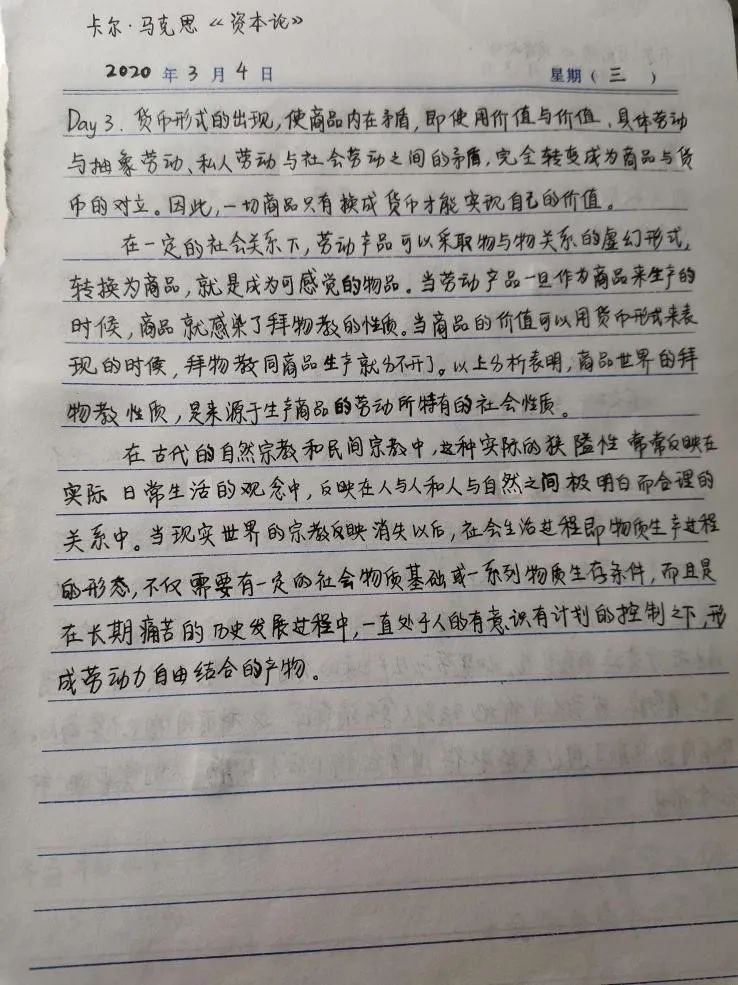 卡尔·马克思《资本论》
2020 年 3 月 4 日 星期(三)
Day 3. 货币形式的出现,使商品内在矛盾,即使用价值与价值、具体劳动
与抽象劳动、私人劳动与社会劳动之间的矛盾,完全转变成为商品与货
币的对立。因此,一切商品只有换成货币才能实现自己的价值。
在一定的社会关系下,劳动产品可以采取物与物关系的虚幻形式,
转换为商品,就是成为可感觉的物品。当劳动产品一旦作为商品来生产的
时候,商品就感染了拜物教的性质。当商品的价值可以用货币形式来表
现的时候,拜物教同商品生产就分不开了。以上分析表明,商品世界的拜
物教性质,是来源于生产商品的劳动所特有的社会性质。
在古代的自然宗教和民间宗教中,这种实际的狭隘性常常反映在
实际日常生活的观念中,反映在人与人和人与自然之间极明白而合理的
关系中。当现实世界的宗教反映消失以后,社会生活过程即物质生产过程
的形态,不仅需要有一定的社会物质基础或一系列物质生存条件,而且是
在长期痛苦的历史发展过程中,一直处于人的有意识有计划的控制之下,形
成劳动力自由结合的产物。